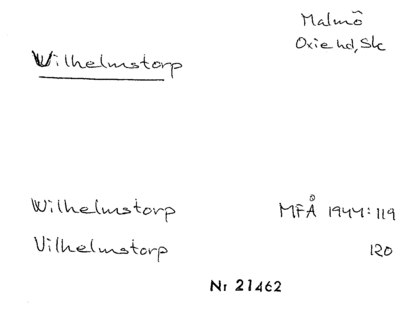 Malmö
Oxie hd, Sk
Vilhelmstorp
Wilhelmstorp MFÅ 1944:119
Vilhelmstorp 120
Nr 21462